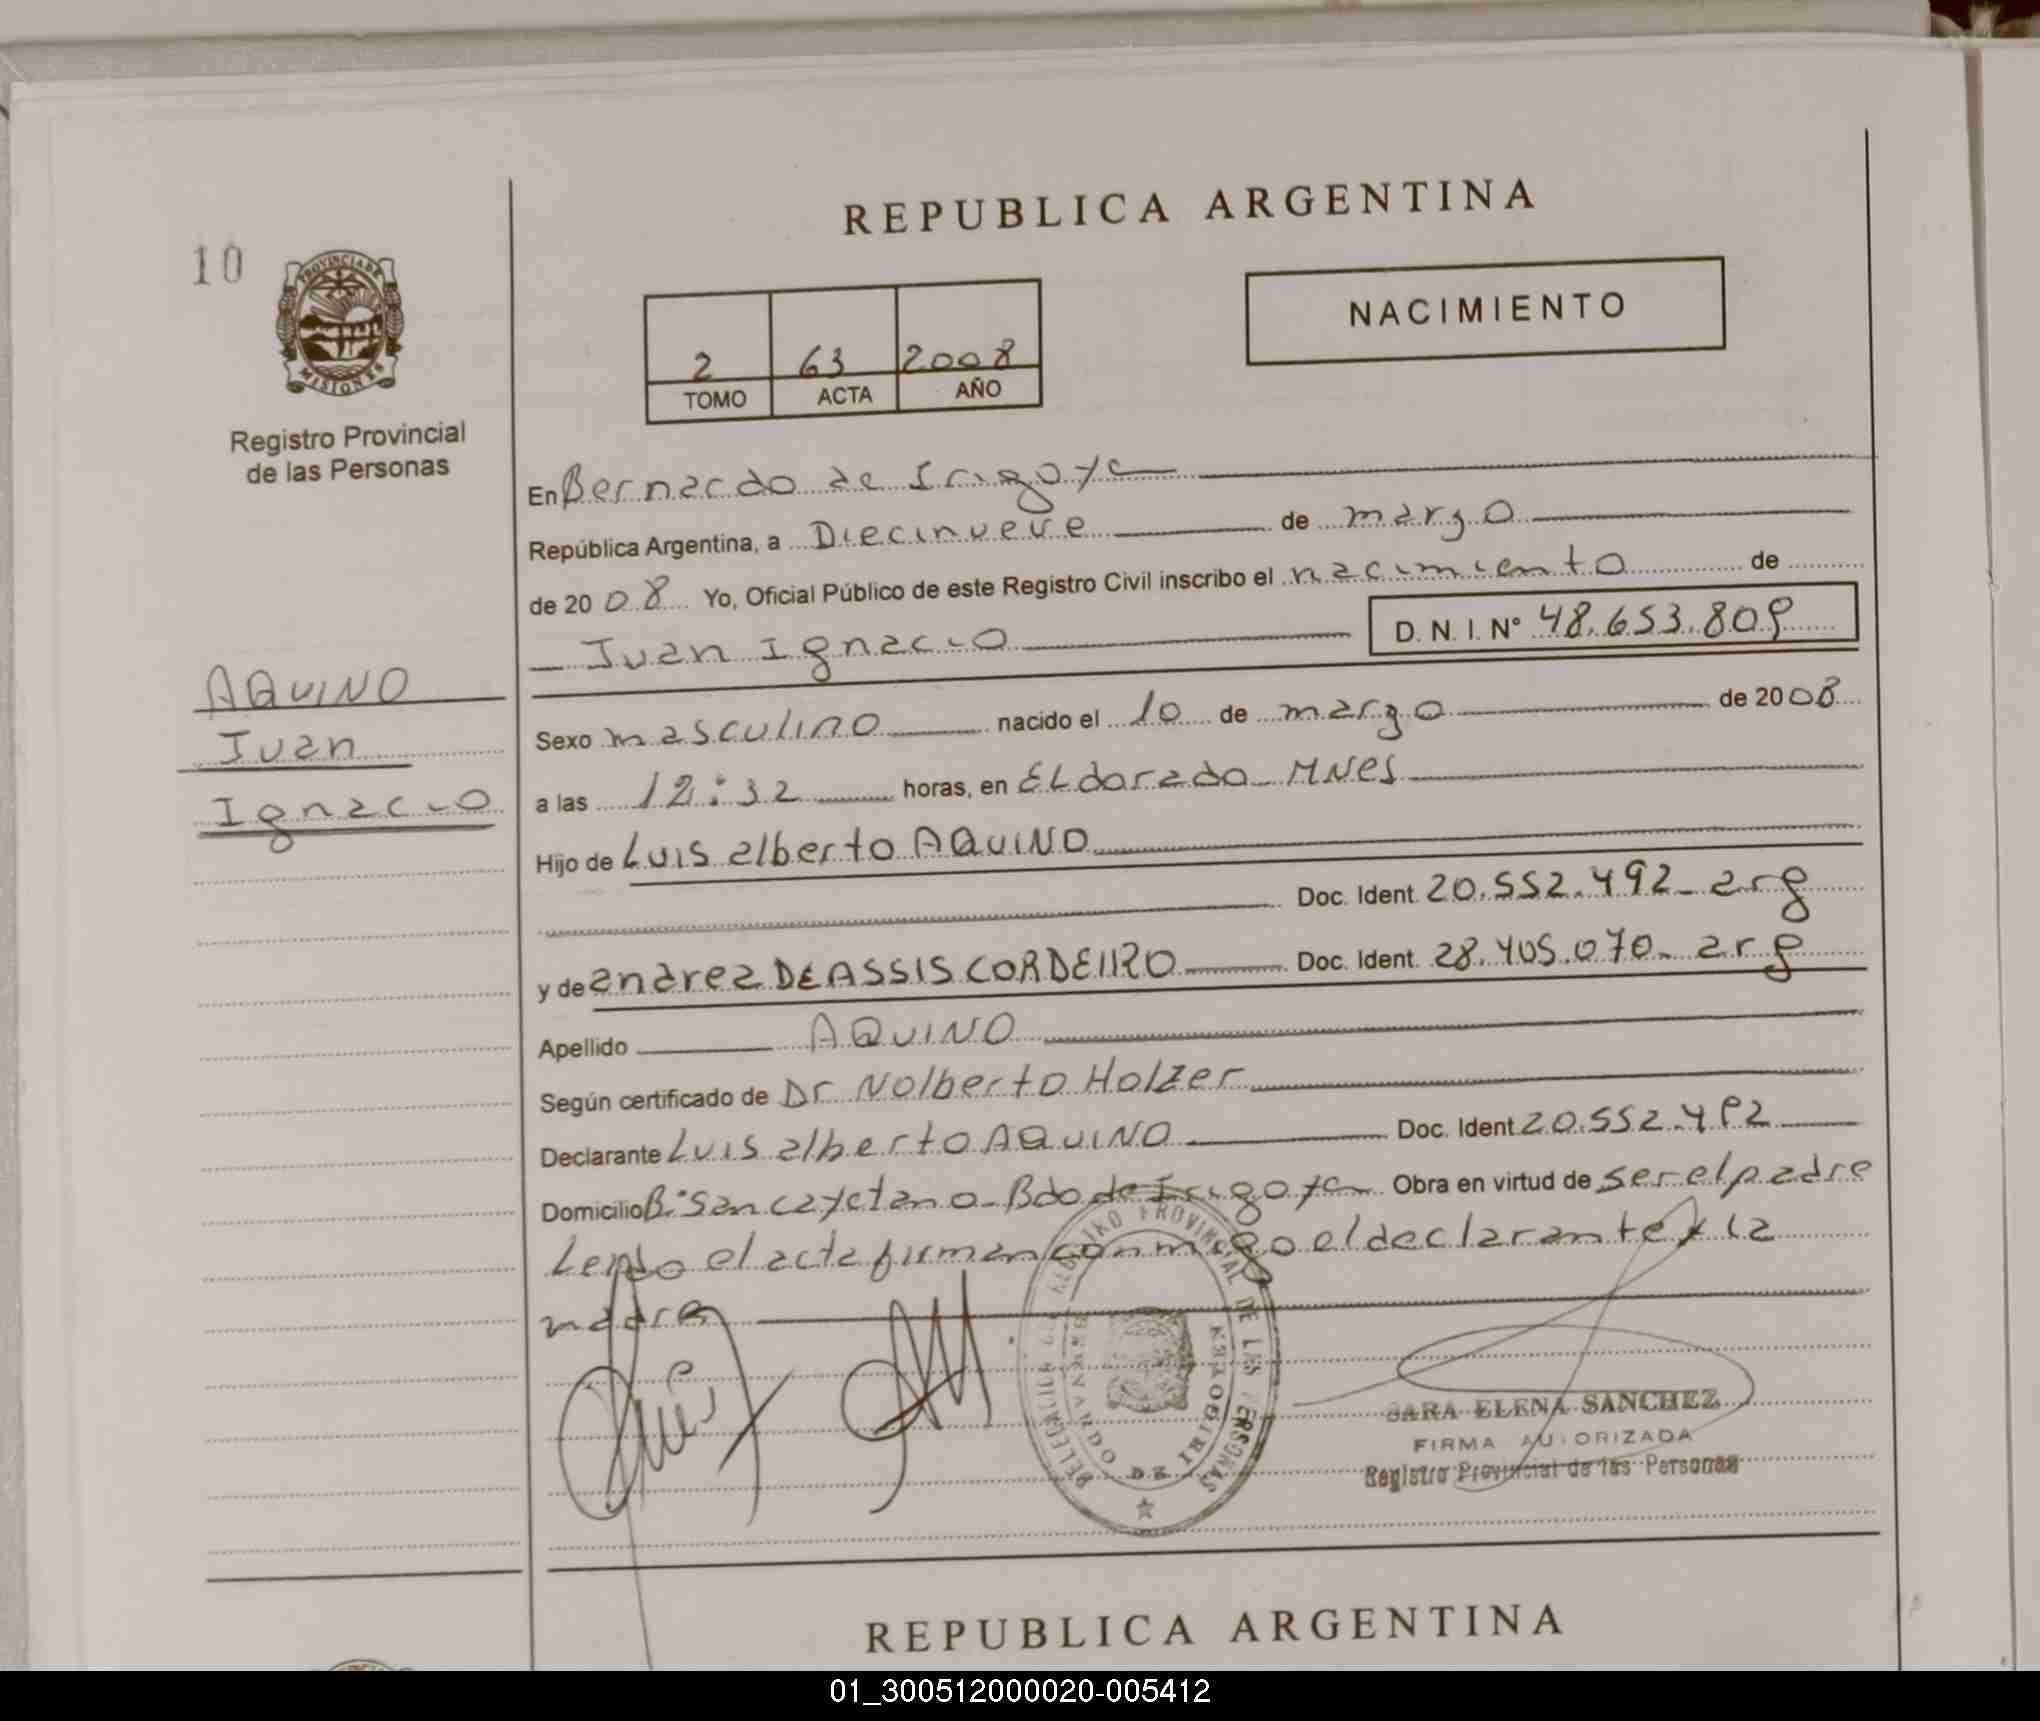 REPUBLICA ARGENTINA
10
PROVINCIA DE
MISIONES
Registro Provincial
de las Personas
2 63 2008
TOMO ACTA AÑO
NACIMIENTO
En Bernardo de Irigoye
República Argentina, a Diecinueve de marzo
de 20 08 Yo, Oficial Público de este Registro Civil inscribo el nacimiento de
Juan Ignacio D.N.I. Nº 48.653.809
AQUINO
Juan
Ignacio
Sexo masculino nacido el 10 de marzo de 2008
a las 12:32 horas, en ELdorado_MNes
Hijo de Luis alberto AQUINO
Doc. Ident. 20.552.492_ arg
y de andrea DE ASSIS CORDEIRO Doc. Ident. 28.405.070_ arg
Apellido AQUINO
Según certificado de Dr Nolberto Holzer
Declarante Luis alberto AQUINO Doc. Ident 20.552.492
Domicilio B° San cayetano_Bdo de Irigoye Obra en virtud de ser el padre
Leido el acta firman conmigo el declarante y la
madre
REGISTRO PROVINCIAL DE LAS PERSONAS
SARA ELENA SANCHEZ
FIRMA AUTORIZADA
Registro Provincial de las Personas
REPUBLICA ARGENTINA
01_300512000020-005412